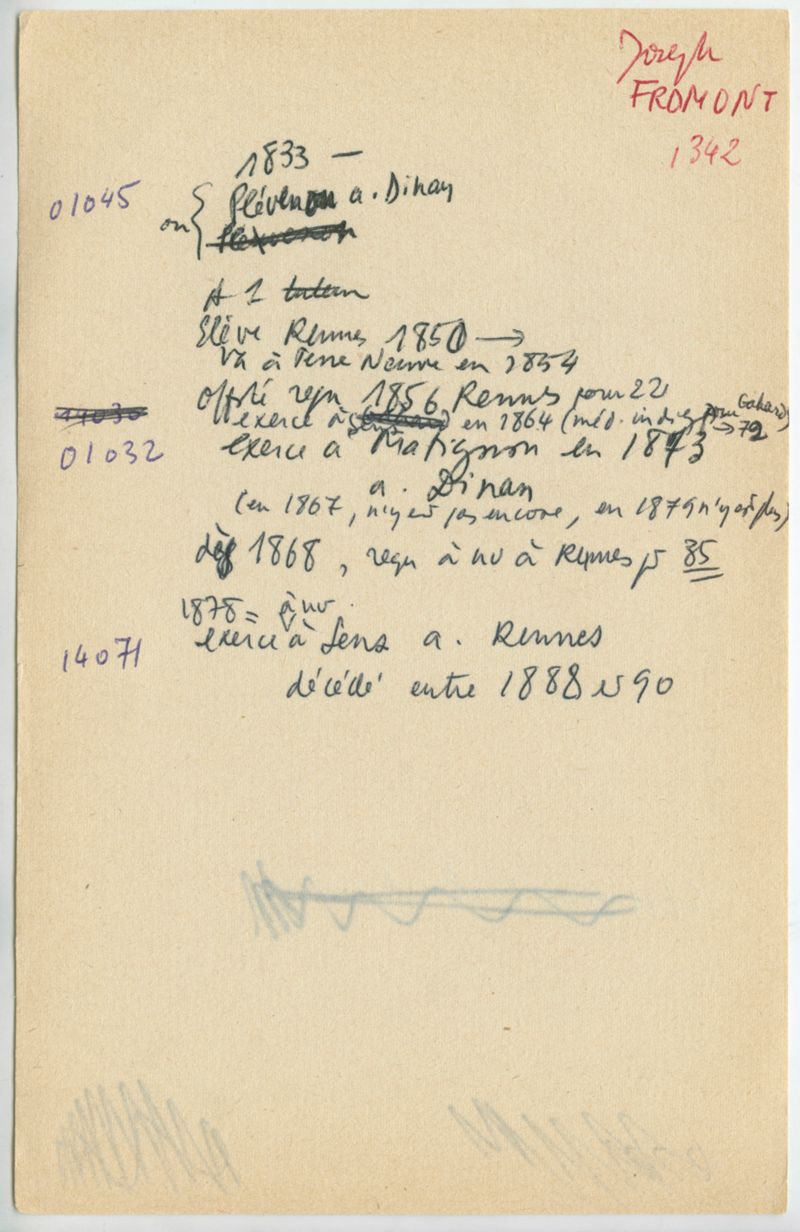 Joseph
FROMONT
1342
1833 —
01045
ou { Plévenon a. Dinan
A 1
Elève Rennes 1850 →
va à Terre Neuve en 1854
offsté reçu 1856 Rennes pour 22
exerce à Sens en 1864 (méd. indig. pour Gahard) → 72
01032 exerce à Matignon en 1873
a. Dinan
(en 1867, n'y est pas encore, en 1879 n'y est plus)
1868, reçu à nv à Rennes pr 35
1878 = à nv.
14071 exerce à Sens a. Rennes
décédé entre 1888 et 90